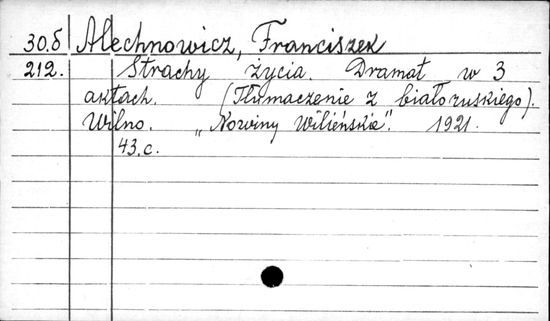 30.б Alechnowicz, Franciszek
212. Strachy życia. Dramat w 3
aktach. (Tłumaczenie z białoruskiego).
Wilno. „Nowiny Wileńskie". 1921.
43.c.